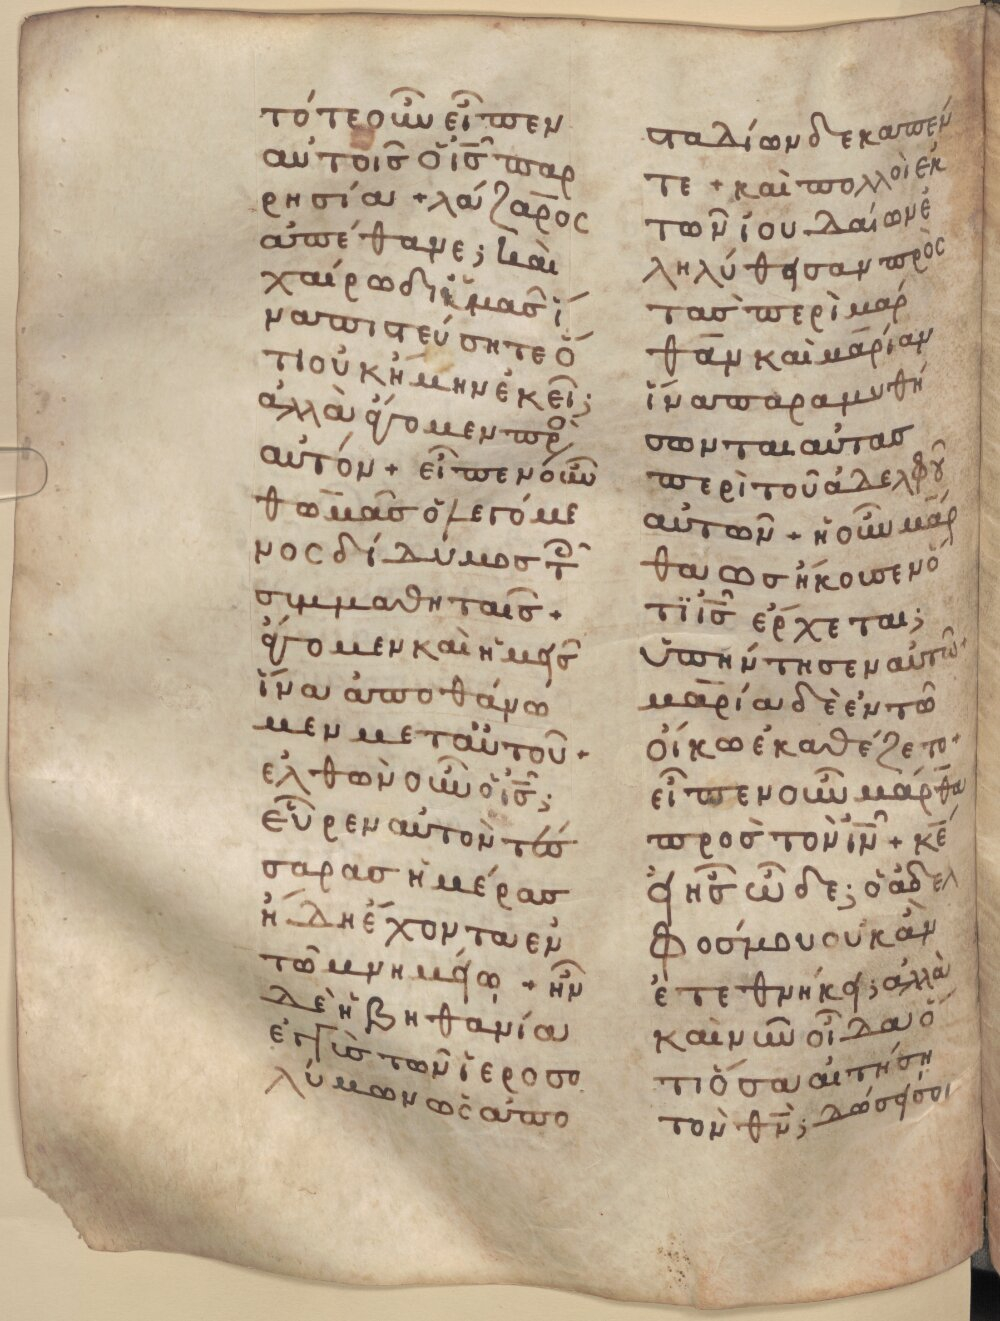 τότε οὖν εἶπεν
αὐτοῖς ὁ ἰς̄ παρ
ρησία + λάζαρος
ἀπέθανε; καὶ
χαίρω δι ἡμᾶς ἵ
να πιστεύσητε ὅ
τι οὐκ ἤμην ἐκεῖ;
ἀλλὰ ἄγομεν πρ
αὐτόν + εἶπεν οὖν
θωμᾶς ὁ λεγόμε
νος δίδυμος τ
συμμαθηταῖς +
ἄγομεν καὶ ἡμεῖς
ἵνα ἀποθάνω
μεν μετ αὐτοῦ +
ἐλθὼν οὖν ὁ ἰς̄;
εὗρεν αὐτὸν τέσ
σαρας ἡμέρας
ἤδη ἔχοντα ἐν
τῶ μνημείω + ἦν
δὲ ἡ βηθανία
ἐγγὺς τῶν ἱεροσο
λύμων ὡς ἀπο
σταδίων δεκαπέν
τε + καὶ πολλοὶ ἐκ
τῶν ἰουδαίων ἐ
ληλύθεισαν πρὸς
τὰς περὶ μάρ
θαν καὶ μαρίαν
ἵνα παραμυθή
σωνται αὐτὰς
περὶ τοῦ ἀδελφοῦ
αὐτῶν + ἡ οὖν μάρ
θα ὡς ἤκουσεν ὅ
τι ἰς̄ ἔρχεται;
ὑπήντησεν αὐτῶ·
μαρία δὲ ἐν τῶ
οἴκω ἐκαθέζετο +
εἶπεν οὖν μάρθα
πρὸς τὸν ἰν̄ + κε̄
εἰ ἦς ὧδε; ὁ ἀδελ
φός μου οὐκ ἂν
ἐτεθνήκει; ἀλλὰ
καὶ νῦν οἶδα ὅ
τι ὅσα αἰτήση
τὸν θν̄; δώσει σοι